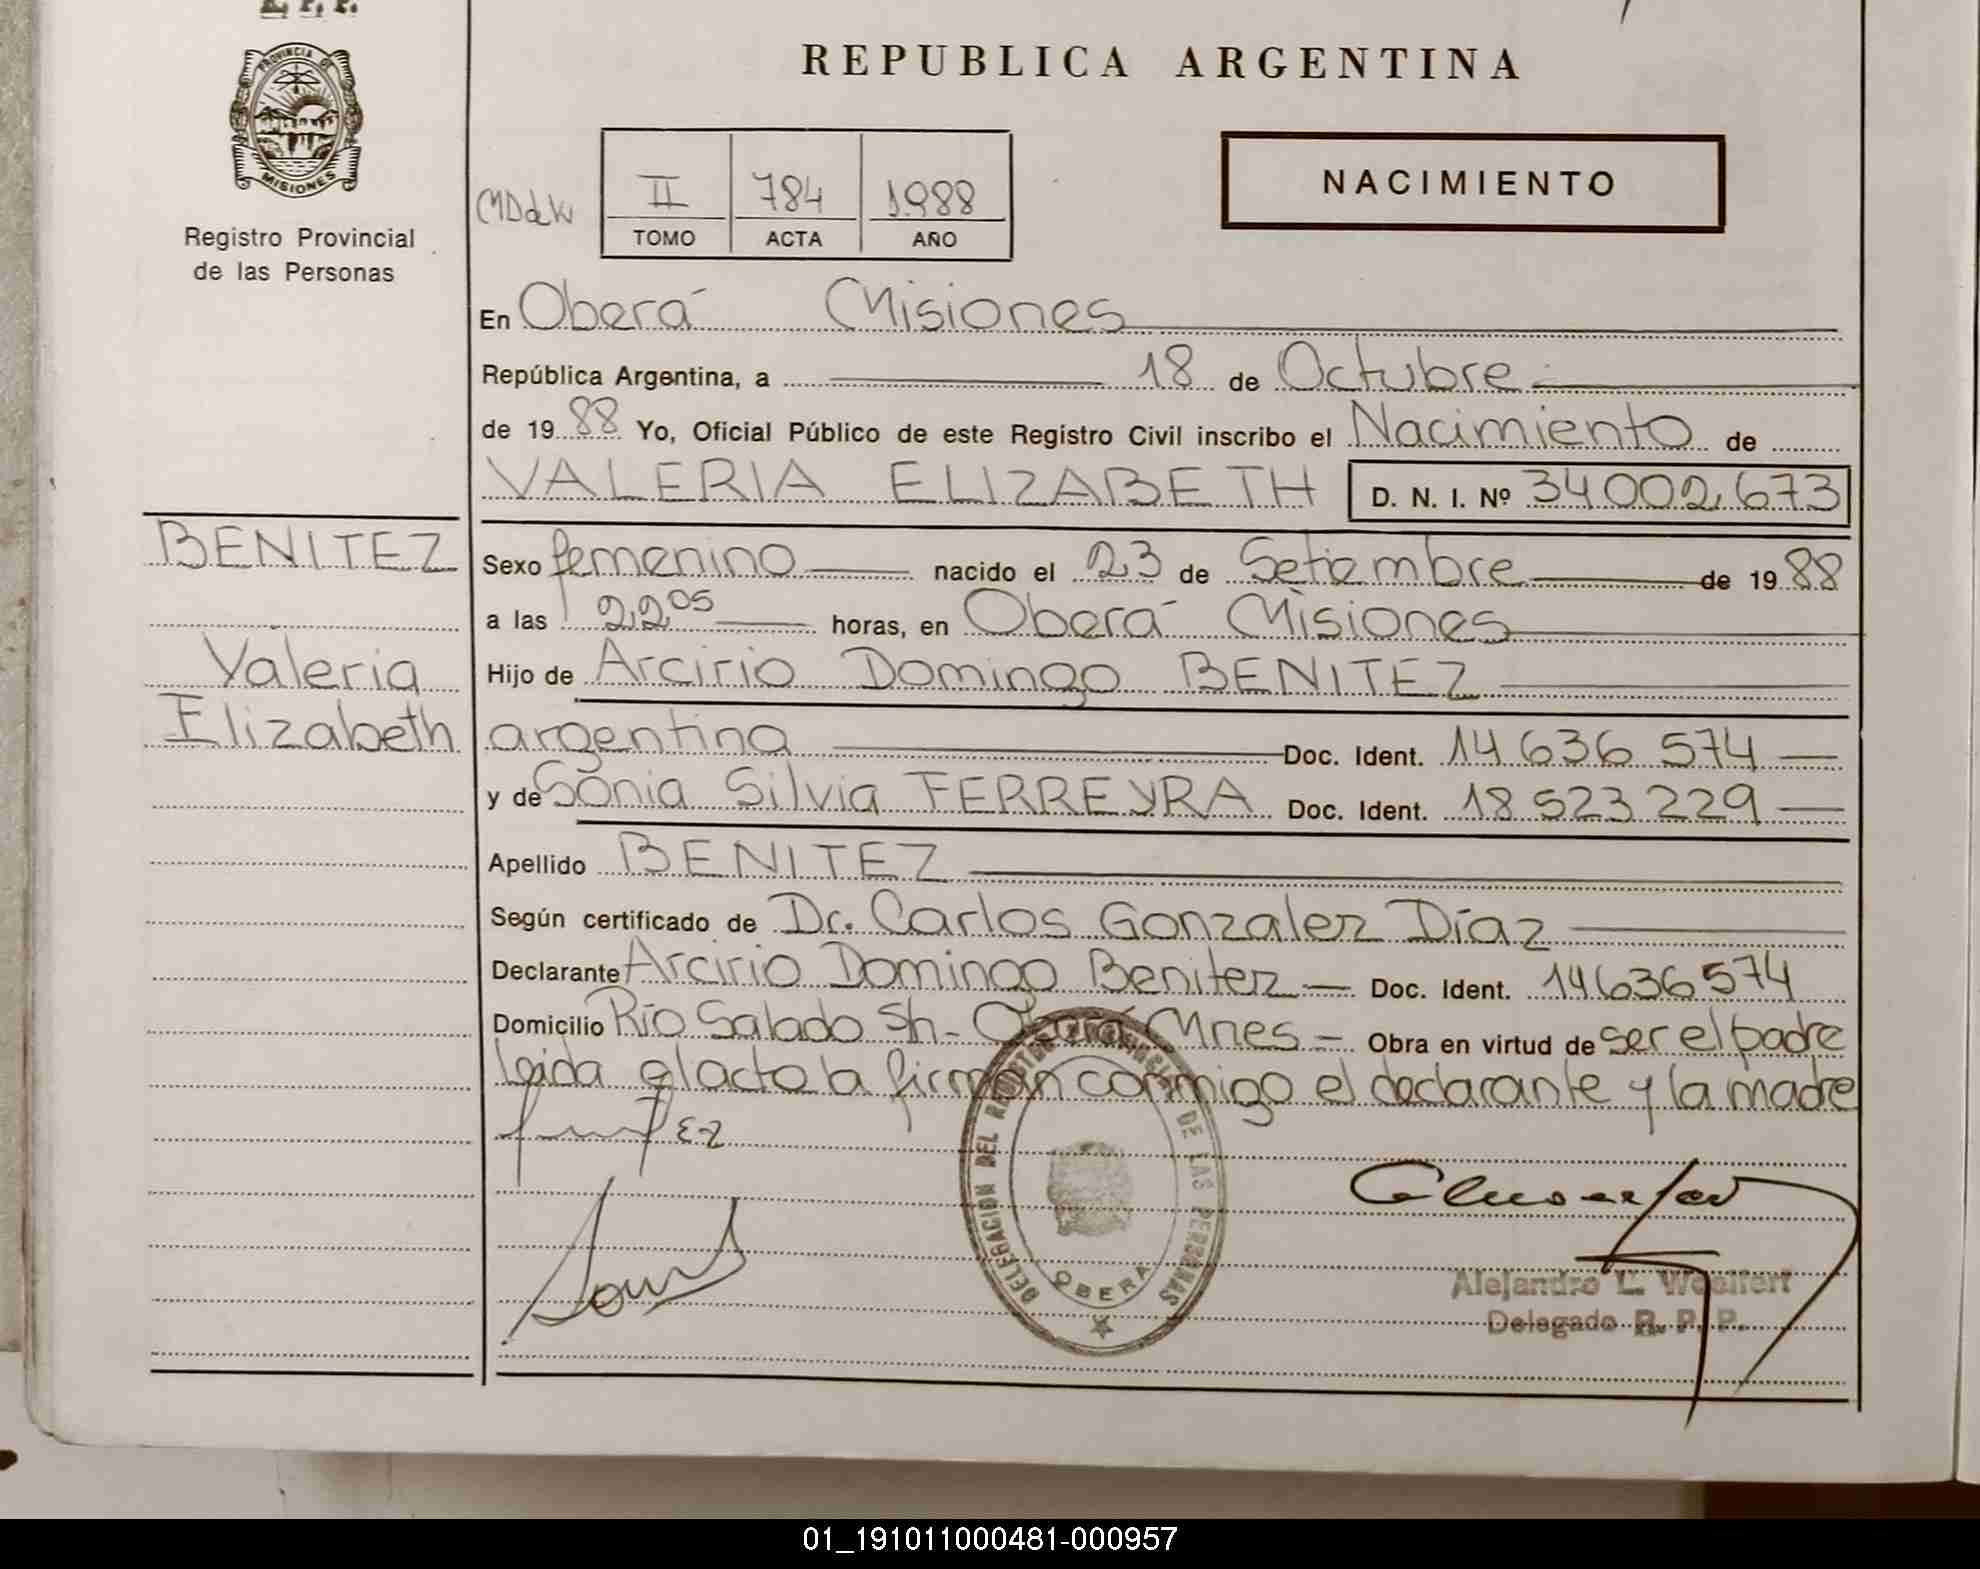 R. P. P.
PROVINCIA DE
MISIONES
Registro Provincial
de las Personas
REPUBLICA ARGENTINA
II 784 1988
TOMO ACTA AÑO
NACIMIENTO
En Oberá Misiones
República Argentina, a 18 de Octubre
de 1988 Yo, Oficial Público de este Registro Civil inscribo el Nacimiento de
VALERIA ELIZABETH D. N. I. Nº 34.002.673
BENITEZ
Valeria
Elizabeth
Sexo femenino nacido el 23 de Setiembre de 1988
a las 22 05 horas, en Oberá Misiones
Hijo de Arcirio Domingo BENITEZ
argentina Doc. Ident. 14 636 574
y de Sonia Silvia FERREYRA Doc. Ident. 18 523 229
Apellido BENITEZ
Según certificado de Dr. Carlos Gonzalez Díaz
Declarante Arcirio Domingo Benitez Doc. Ident. 14636574
Domicilio Río Salado Sh- Oberá Mnes - Obra en virtud de ser el padre
leida el acto la firman conmigo el declarante y la madre
DELEGACION DEL REGISTRO PROVINCIAL DE LAS PERSONAS
OBERA
Alejandro L. Woelfert
Delegado R. P. P.
01_191011000481-000957